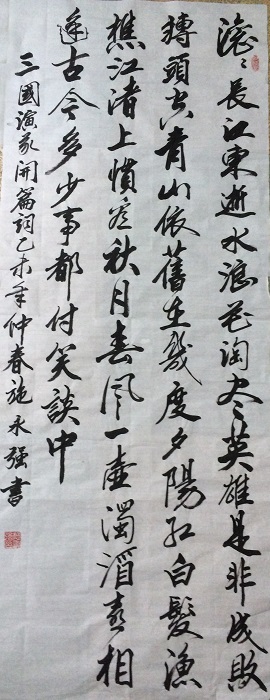 滾々長江東逝水浪花淘尽英雄是非成敗
轉頭空青山依舊在幾度夕陽紅白髮漁
樵江渚上慣看秋月春風一壺濁酒喜相
逢古今多少事都付笑談中
三國演義開篇詞乙未年仲春施永强書